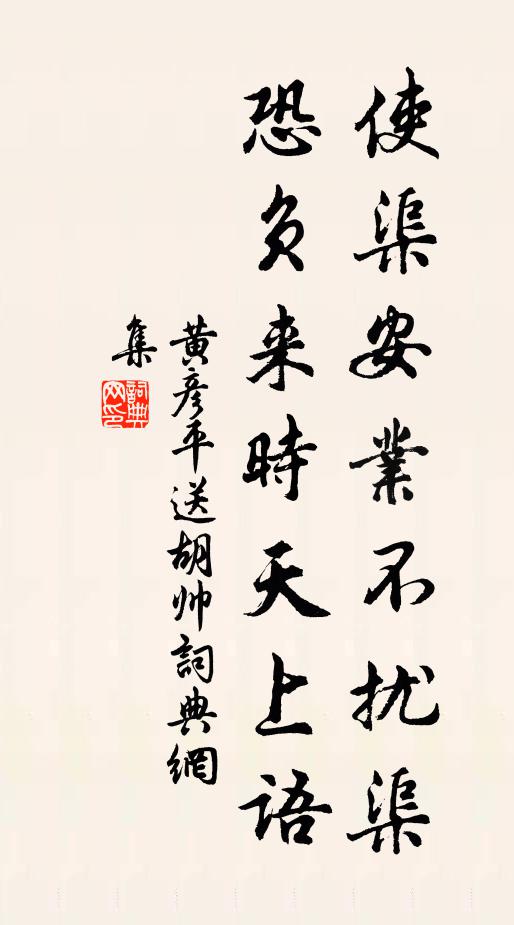 使渠安業不扰渠
恐负来時天上语
黄彦平送胡帅詞典網
集
詞典
网印